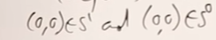 (0,0)∈S¹ ad (0,0)∈S⁰